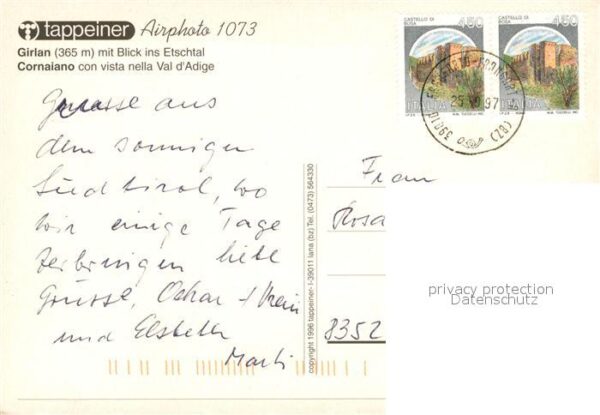 tappeiner Airphoto 1073
Girlan (365 m) mit Blick ins Etschtal
Cornaiano con vista nella Val d'Adige
Grüsse aus
dem sonnigen
Südtirol, wo
wir einige Tage
verbringen liebe
Grüsse, Oskar +
und Elsbeth
Marti
copyright 1996 tappeiner- I-39011 lana (bz) Tel. (0473) 564330
CASTELLO DI
BOSA
450
ITALIA
CASTELLO DI
BOSA
450
ITALIA
97
(BZ)
Frau
Rosa
8352
privacy protection
Datenschutz